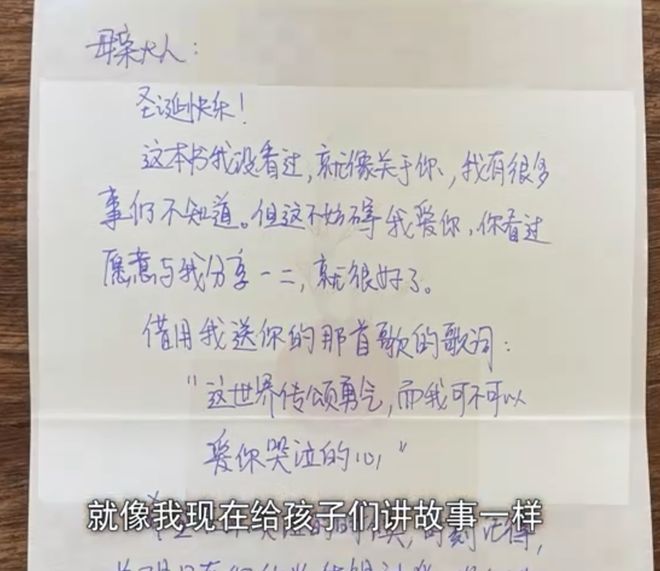 母亲大人：
圣诞快乐！
这本书我没看过，就像关于你，我有很多
事仍不知道。但这不妨碍我爱你，你看过
愿意与我分享一二，就很好了。
借用我送你的那首歌的歌词：
"这世界传颂勇气，而我可不可以
爱你哭泣的心"
就像我现在给孩子们讲故事一样
时刻记得，